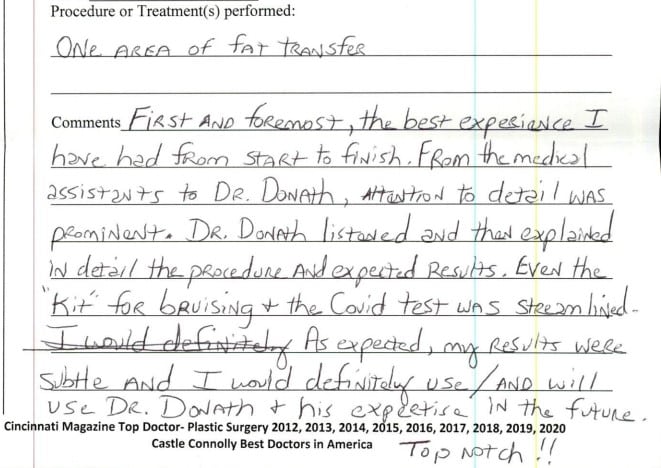 Procedure or Treatment(s) performed:
ONE AREA OF FAT TRANSFER
Comments FIRST AND foremost, the best experiance I
have had from START to finish. FROM the medical
assistants to DR. DONAth, Attention to detail WAS
prominent. DR. DONAth listened and then explained
IN detail the procedure And expected Results. Even the
"Kit" for bruising + the Covid test was streamlined-
I would definitely As expected, my results were
subtle AND I would definitely use/AND will
use DR. Donath + his expertise IN the future.
Cincinnati Magazine Top Doctor- Plastic Surgery 2012, 2013, 2014, 2015, 2016, 2017, 2018, 2019, 2020
Castle Connolly Best Doctors in America
Top Notch!!